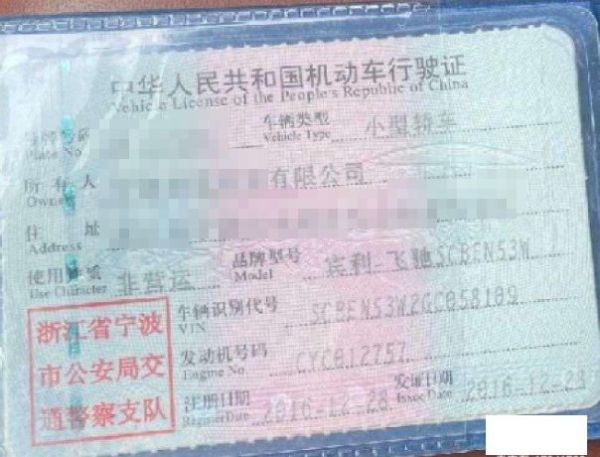 中华人民共和国机动车行驶证
Vehicle License of the People's Republic of China
号牌号码 车辆类型 小型轿车
Plate No. Vehicle Type
所有人 有限公司
Owner
住址
Address
使用性质 非营运 品牌型号 宾利-飞驰SCBEN53W
Use Character Model
浙江省宁波
市公安局交
通警察支队
车辆识别代号 SCBEN53W2GC058189
VIN
发动机号码 CYC012757
Engine No.
注册日期 2016-12-28 发证日期 2016-12-28
Register Date Issue Date